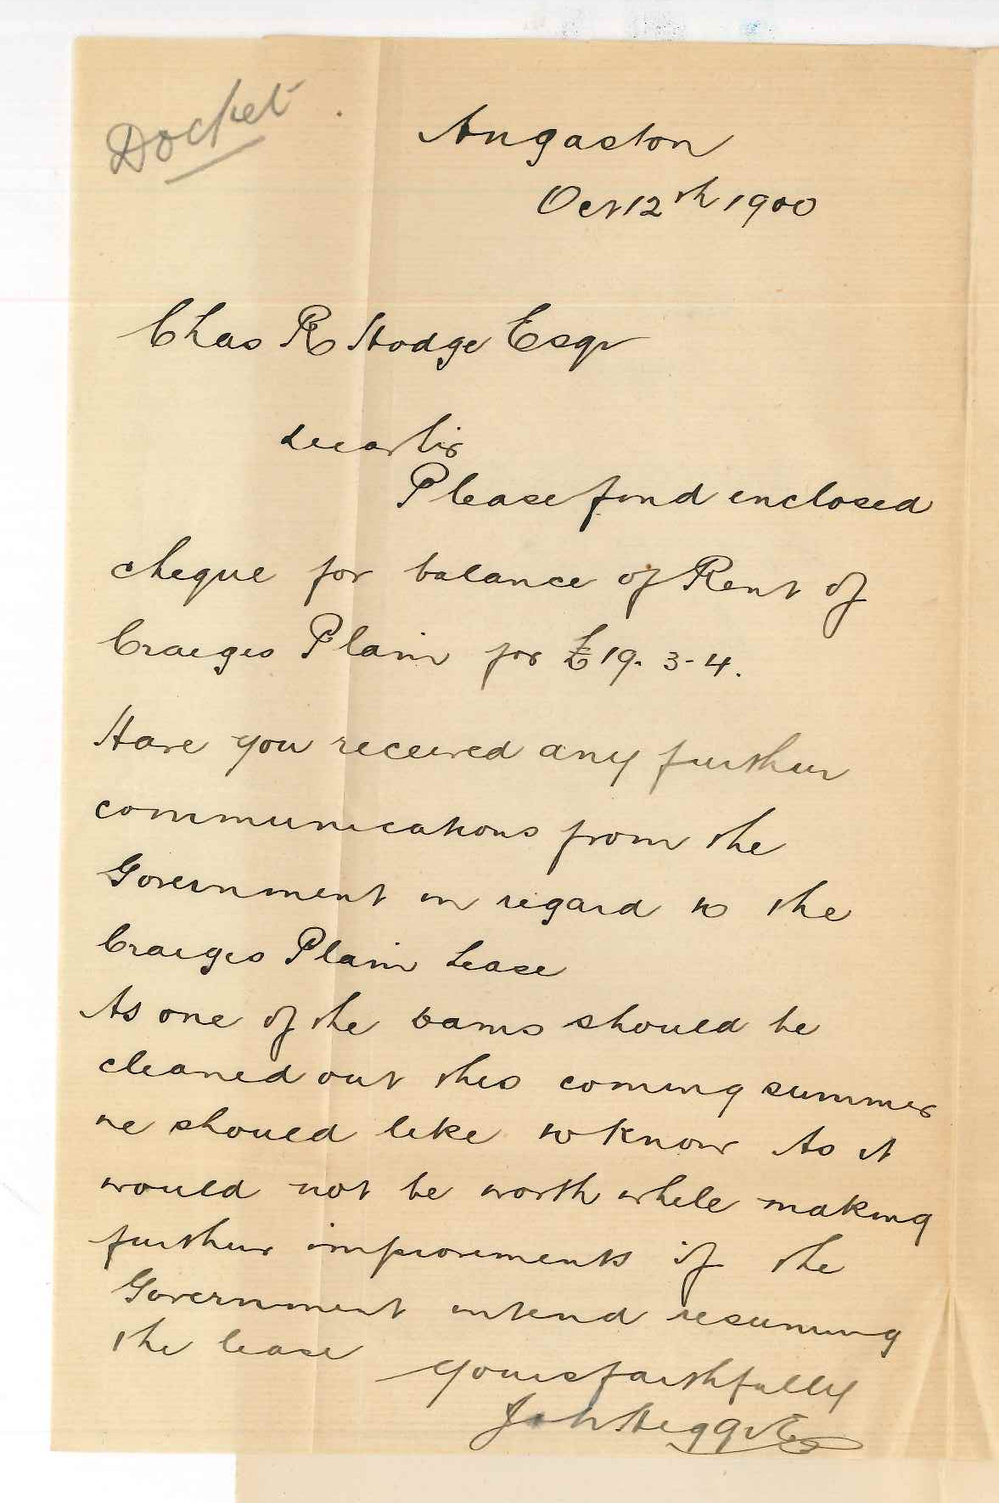 Docket
Angaston
Oct 12th 1900
Chas R Hodge Esqr
Dear Sir
Please find enclosed
cheque for balance of Rent of
Craiges Plain for £19. 3-4.
Have you received any further
communications from the
Government in regard to the
Craiges Plain Lease
As one of the dams should be
cleaned out this coming summer
we should like to know As it
would not be worth while making
further improvements if the
Government intend resuming
the lease
Yours faithfully